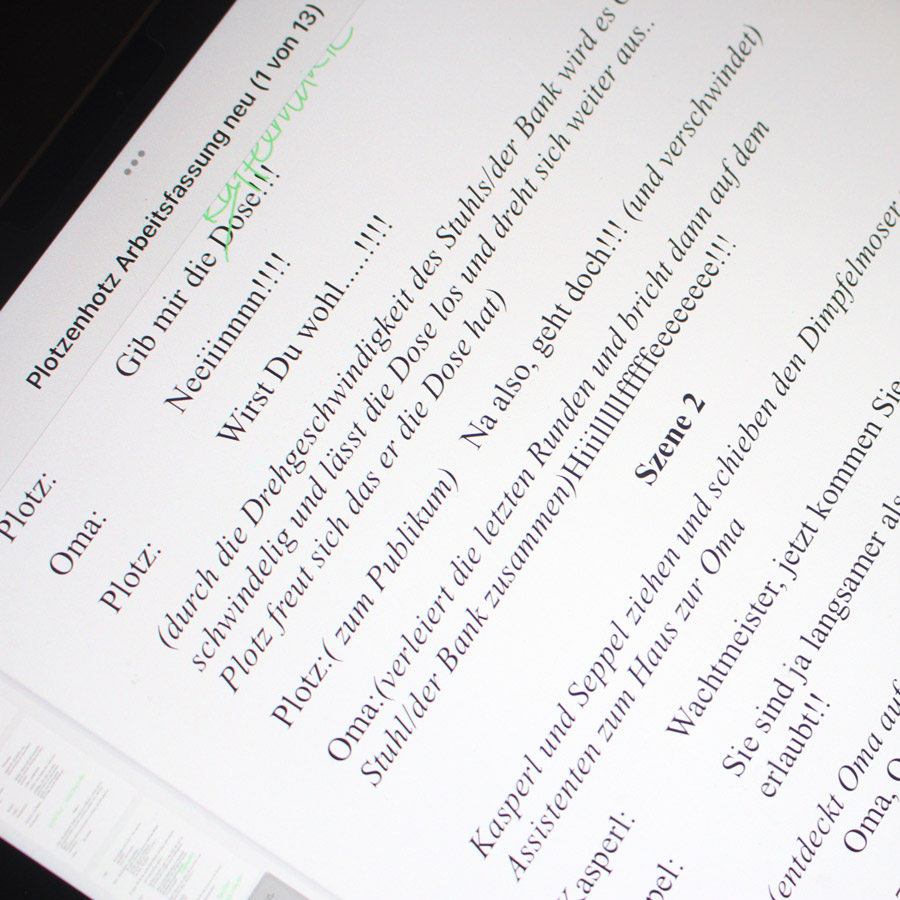 Plotzenhotz Arbeitsfassung neu (1 von 13)
Kaffeemühle
Plotz: Gib mir die Dose!!!
Oma: Neeiiinnnn!!!!
Plotz: Wirst Du wohl.....!!!!
(durch die Drehgeschwindigkeit des Stuhls/der Bank wird es
schwindelig und lässt die Dose los und dreht sich weiter aus..
Plotz freut sich das er die Dose hat)
Plotz:( zum Publikum) Na also, geht doch!!! (und verschwindet)
Oma:(verleiert die letzten Runden und bricht dann auf dem
Stuhl/der Bank zusammen)
Szene 2
Kasperl und Seppel ziehen und schieben den Dimpfelmoser
Assistenten zum Haus zur Oma
Kasperl: Wachtmeister, jetzt kommen Sie
Sie sind ja langsamer als
erlaubt!!
(entdeckt Oma auf
Oma,